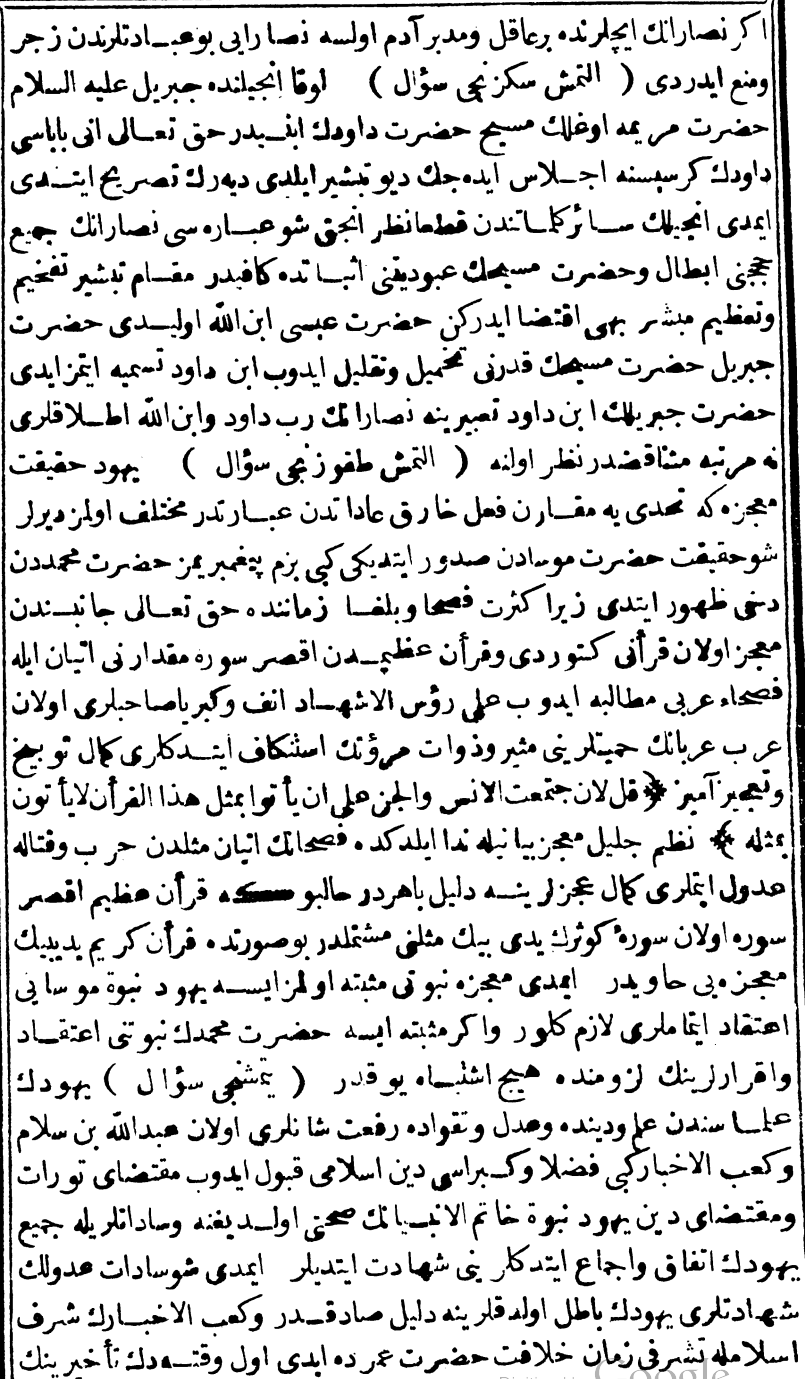 اكر نصارانك ايچلرنده برعاقل ومدبر آدم اولسه نصارايى بوعبادتلرندن زجر
ومنع ايدردى ( التمش سكزنجى سؤال ) لوقا انجيلنده جبريل عليه السلام
حضرت مريمه اوغلك مسيح حضرت داودك ابنيدر حق تعالى انى باباسى
داودك كرسيسنه اجلاس ايده جك ديو تبشير ايلدى ديه رك تصريح ايتدى
ايمدى انجيلك سائر كلماتندن قطعانظر انجق شو عباره سى نصارانك جميع
حججنى ابطال وحضرت مسيحك عبوديتنى اثباتده كافيدر مقام تبشير تفخيم
وتعظيم مبشر بهى اقتضا ايدركن حضرت عيسى ابن الله اوليدى حضرت
جبريل حضرت مسيحك قدرنى تخميل وتقليل ايدوب ابن داود تسميه ايتمز ايدى
حضرت جبريلك ابن داود تعبيرينه نصارانك رب داود وابن الله اطلاقلرى
نه مرتبه متناقضدر نظر اولنه ( التمش طقوزنجى سؤال ) يهود حقيقت
معجزه كه تحدى يه مقارن فعل خارق عاداتدن عبارتدر مختلف اولمز ديرلر
شو حقيقت حضرت موسادن صدور ايتديكى كبى بزم پيغمبريمز حضرت محمددن
دخى ظهور ايتدى زيرا كثرت فصحا وبلغا زماننده حق تعالى جانبندن
معجز اولان قرأنى كتوردى وقرأن عظيمدن اقصر سوره مقدارنى اتيان ايله
فصحاء عربى مطالبه ايدوب على رؤس الاشهاد انف وكبريا صاحبلرى اولان
عرب عربانك حميتلرينى مثير وذوات مروتك استنكاف ايتدكلرى كمال توبيخ
وتعجيز آميز ﴿ قل لان جتمعت الانس والجن على ان يأتوا بمثل هذا القرأن لايأتون
بمثله ﴾ نظم جليل معجز بيانيله ندا ايلدكده فصحانك اتيان مثلدن حرب وقتاله
عدول ايتملرى كمال عجزلرينه دليل باهردر حالبوكه قرأن عظيم اقصر
سوره اولان سورۀ كوثرك يدى بيك مثلنى مشتملدر بوصورتده قرأن كريم يديبيك
معجزه يى حاويدر ايمدى معجزه نبوتى مثبته اولمز ايسه يهود نبوة موسايى
اعتقاد ايتماملرى لازم كلور واكر مثبته ايسه حضرت محمدك نبوتنى اعتقاد
واقرارلرينك لزومنده هيج اشتباه يوقدر ( يتمشنجى سؤال ) يهودك
علماسندن علم ودينده وعدل وتقواده رفعت شانلرى اولان عبدالله بن سلام
وكعب الاخبار كبى فضلا وكبراسى دين اسلامى قبول ايدوب مقتضاى تورات
ومقتضاى دين يهود نبوة خاتم الانبيانك صحتى اولديغنه وساداتلريله جميع
يهودك اتفاق واجماع ايتدكلرينى شهادت ايتديلر ايمدى شوسادات عدولك
شهادتلرى يهودك باطل اولدقلرينه دليل صادقدر وكعب الاخبارك شرف
اسلامله تشرفى زمان خلافت حضرت عمرده ايدى اول وقتهدك تأخيرينك